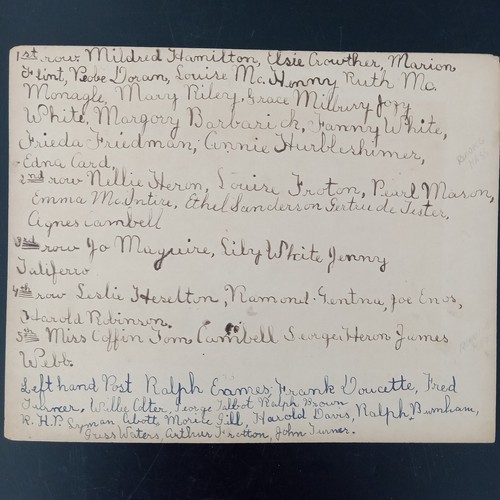 1st row. Mildred Hamilton, Elsie Crowther, Marion
Flint, Pebe Doran, Louise Mc. Henny Ruth Mc.
Monagle, Mary Riley, Grace Milbury Joey
White, Margory Barbarick, Fanny White,
Frieda Friedman, Annie Hurbleshimer,
Edna Card,
2nd row Nillie Heron, Louise Froton, Pearl Mason,
Emma McIntire, Ethel Sanderson Gertrude Tester,
Agnes Cambell
3rd row Jo Maguire, Lily White Jenny
Taliferro
4th row Leslie Heselton, Ramond Gentna, Joe Enos,
Harold Robinson.
5th Miss Coffin Tom Cambell George Heron James
Webb.
Left hand Post Ralph Eames, Frank Doucette, Fred
Turner, Willie Olter, George Talbot Ralph Brown
R.H.P. Lyman Abott, Morice Gill, Harold Davis, Ralph Burnham,
Guss Waters, Arthur Frotton, John Turner.